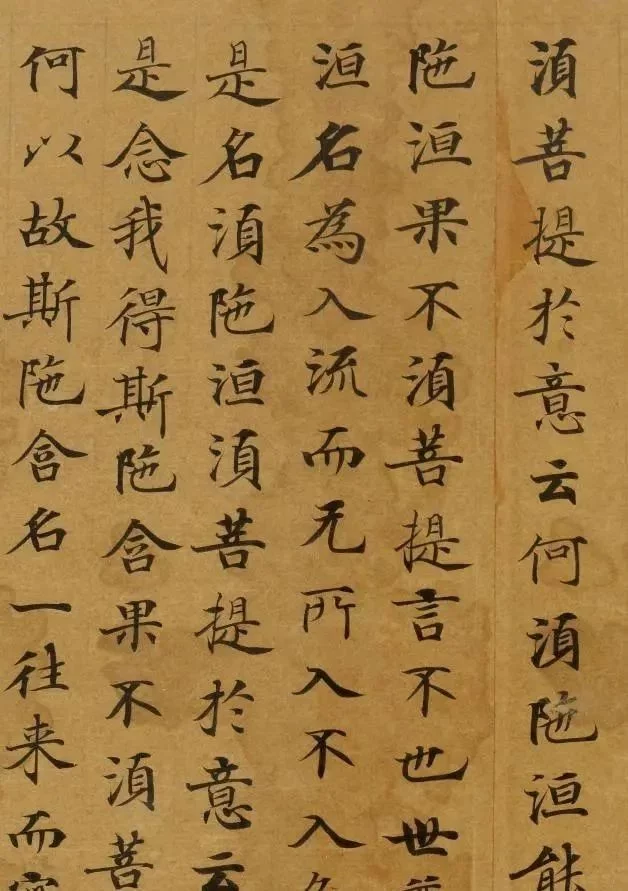 湏菩提於意云何湏陁洹能
陁洹果不湏菩提言不也世
洹名為入流而无所入不入
是名湏陁洹湏菩提於意云
是念我得斯陁含果不湏菩
何以故斯陁含名一往来而